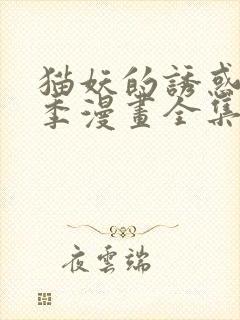 猫妖的誘惑
季漫畫全集
夜雲端